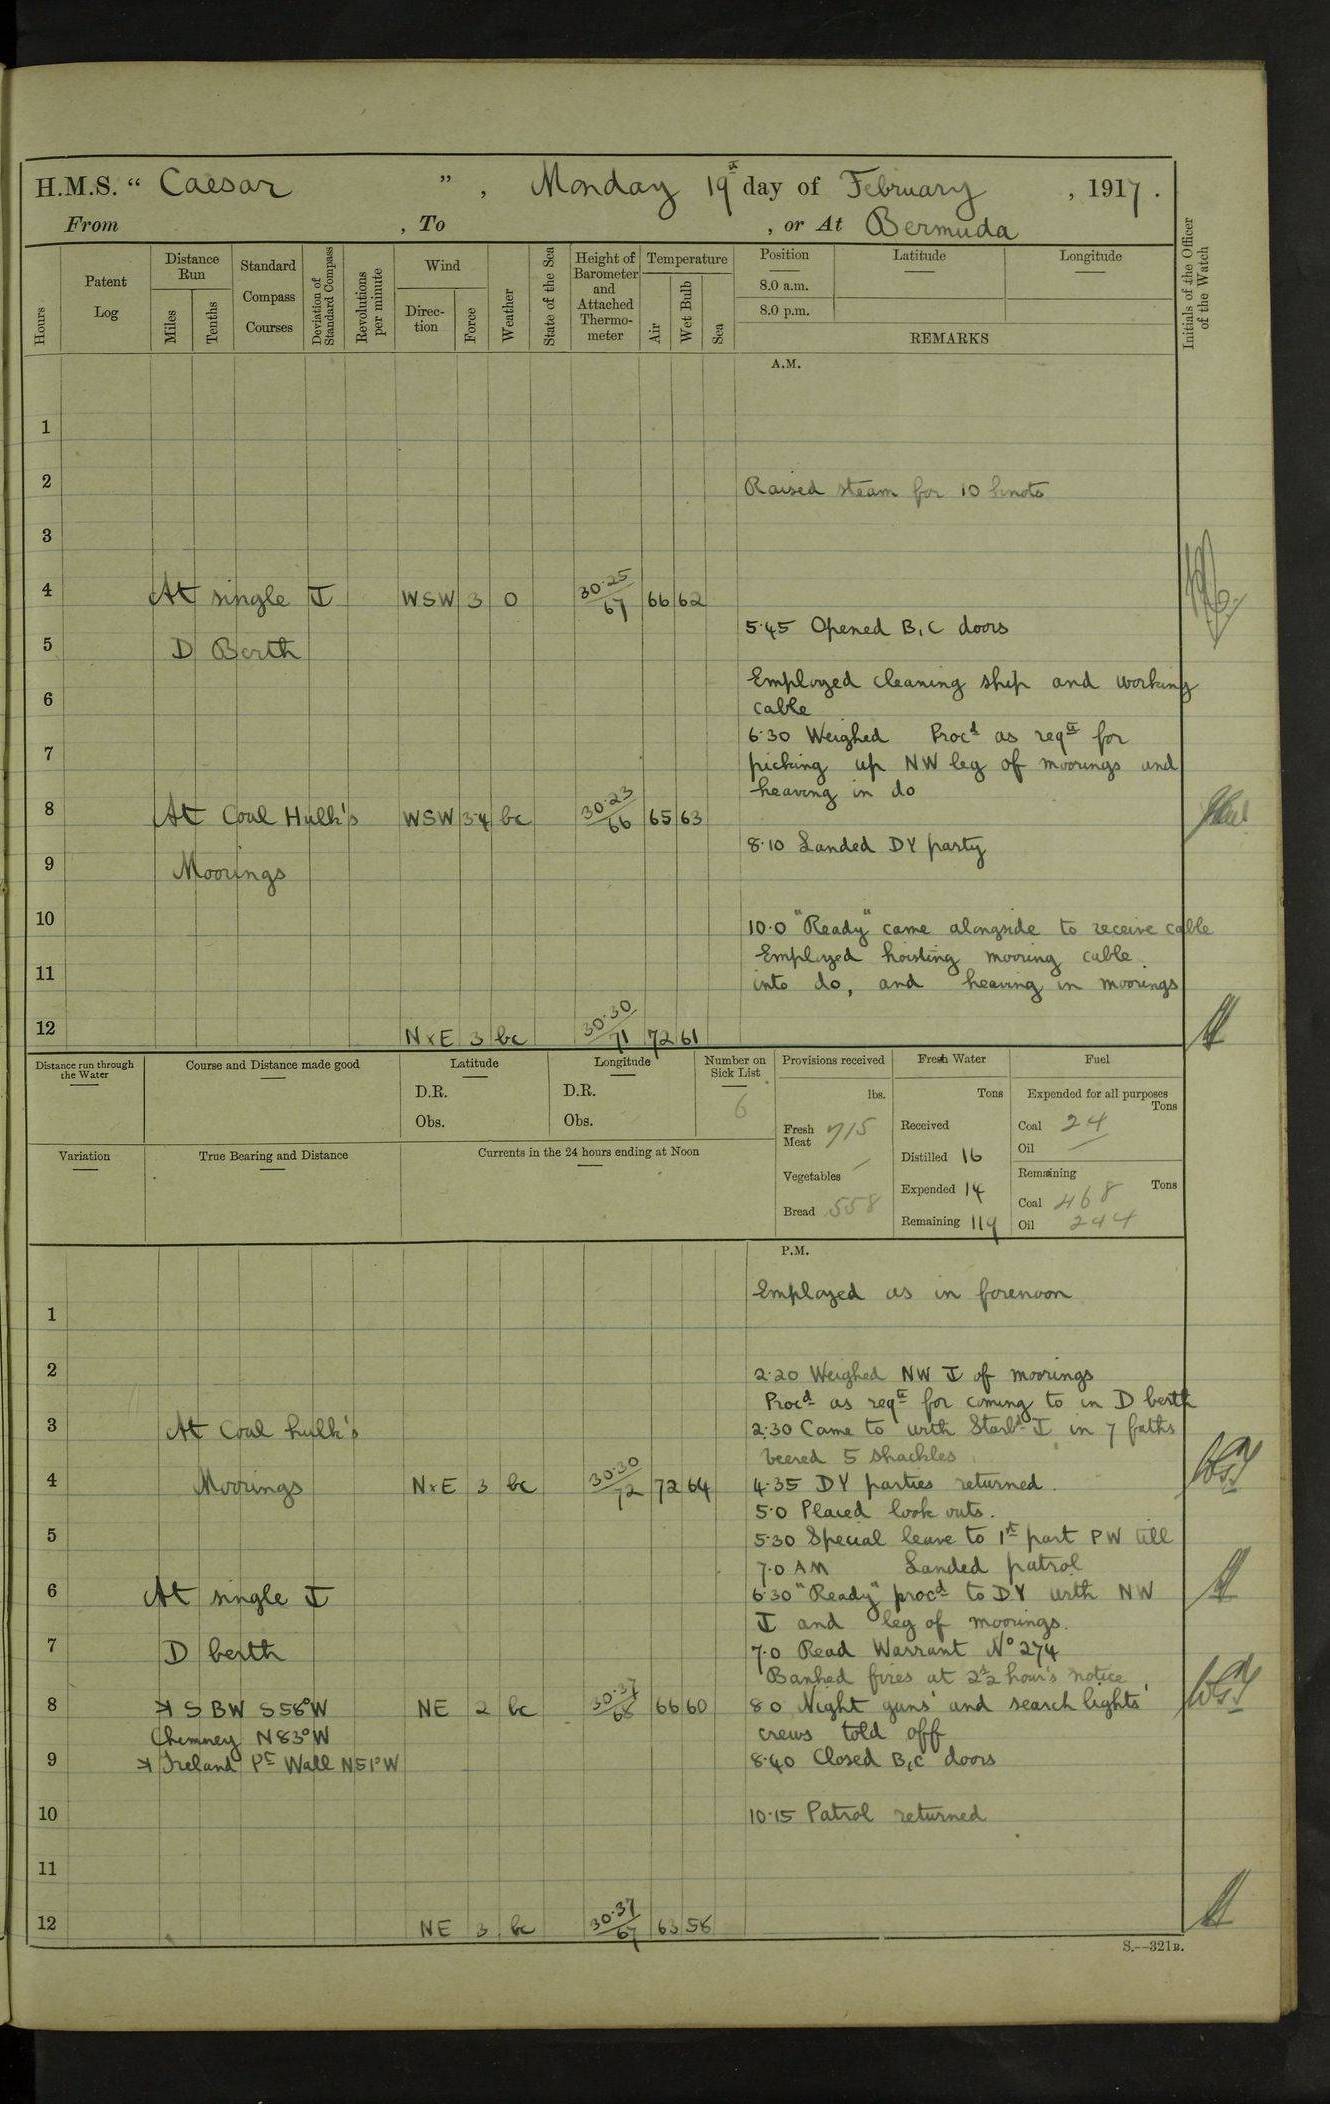 H.M.S. “ Caesar ” , Monday 19th day of February , 1917 .
From , To , or At Bermuda
Hours
Patent Log
Distance Run
Miles
Tenths
Standard Compass Courses
Deviation of Standard Compass
Revolutions per minute
Wind
Direc-tion
Force
Weather
State of the Sea
Height of Barometer and Attached Thermo-meter
Temperature
Air
Wet Bulb
Sea
Position
8.0 a.m.
8.0 p.m.
Latitude
Longitude
REMARKS
Initials of the Officer of the Watch
A.M.
1
2 Raised steam for 10 knots
3
4 At single ⚓ WSW 3 0 30·25/67 66 62
5·45 Opened B, C doors
5 D Berth
Employed cleaning ship and working
6 cable
6·30 Weighed Procd as reqd for
7 picking up NW leg of moorings and
heaving in do
8 At Coal Hulk's WSW 3·4 bc 30·23/66 65 63
8·10 Landed DY party
9 Moorings
10 10·0 "Ready" came alongside to receive cable
Employed hoisting mooring cable
11 into do, and heaving in moorings
12 NxE 3 bc 30·30/71 72 61
Distance run through the Water
Course and Distance made good
Latitude
D.R.
Obs.
Longitude
D.R.
Obs.
Number on Sick List
6
Provisions received
lbs.
Fresh Meat 715
Vegetables /
Bread 558
Fresh Water
Tons
Received
Distilled 16
Expended 14
Remaining 119
Fuel
Expended for all purposes
Tons
Coal 24
Oil /
Remaining
Tons
Coal 468
Oil 244
Variation
True Bearing and Distance
Currents in the 24 hours ending at Noon
P.M.
Employed as in forenoon
1
2 2·20 Weighed NW ⚓ of moorings
Procd as reqd for coming to in D berth
3 At Coal hulk's 2·30 Came to with Starbd ⚓ in 7 faths
veered 5 shackles
4 Moorings NxE 3 bc 30·30/72 72 64 4·35 DY parties returned.
5·0 Placed look outs.
5 5·30 Special leave to 1st part PW till
7·0 AM Landed patrol
6 At single ⚓ 6·30 "Ready" procd to DY with NW
⚓ and leg of moorings.
7 D berth 7·0 Read Warrant No 274
Banked fires at 2½ hour's notice
8 S BW S58°W NE 2 bc 30·37/68 66 60 8·0 Night guns' and search lights'
Chimney N83°W crews told off
9 Ireland Pt Wall N51°W 8·40 Closed B, C doors
10 10·15 Patrol returned
11
12 NE 3 bc 30·37/67 63 58
S.—321B.